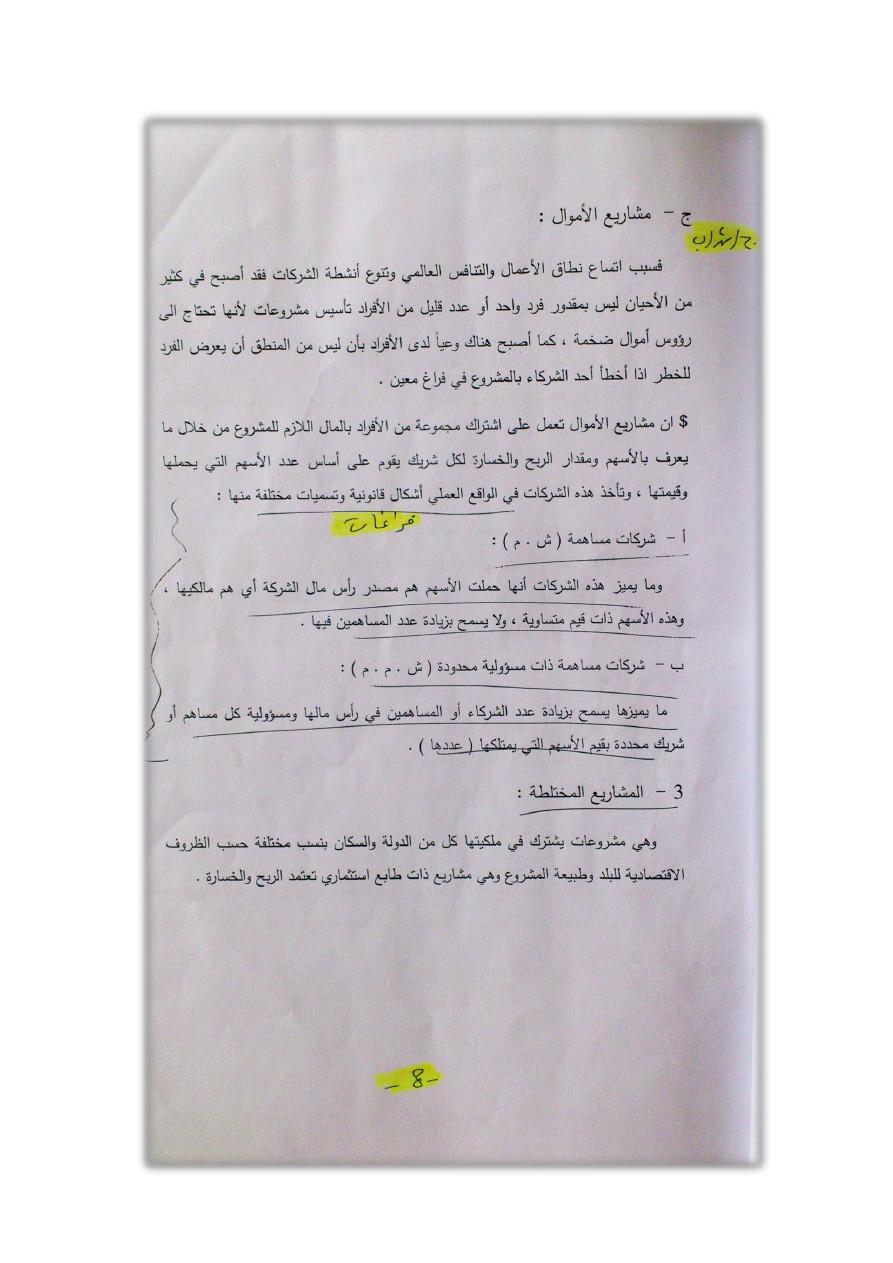 ج - مشاريع الأموال :
فسبب اتساع نطاق الأعمال والتنافس العالمي وتنوع أنشطة الشركات فقد أصبح في كثير
من الأحيان ليس بمقدور فرد واحد أو عدد قليل من الأفراد تأسيس مشروعات لأنها تحتاج الى
رؤوس أموال ضخمة ، كما أصبح هناك وعياً لدى الأفراد بأن ليس من المنطق أن يعرض الفرد
للخطر اذا أخطأ أحد الشركاء بالمشروع في فراغ معين .
$ ان مشاريع الأموال تعمل على اشتراك مجموعة من الأفراد بالمال اللازم للمشروع من خلال ما
يعرف بالأسهم ومقدار الربح والخسارة لكل شريك يقوم على أساس عدد الأسهم التي يحملها
وقيمتها ، وتأخذ هذه الشركات في الواقع العملي أشكال قانونية وتسميات مختلفة منها :
فراغات
أ - شركات مساهمة ( ش . م ) :
وما يميز هذه الشركات أنها حملت الأسهم هم مصدر رأس مال الشركة أي هم مالكيها ،
وهذه الأسهم ذات قيم متساوية ، ولا يسمح بزيادة عدد المساهمين فيها .
ب - شركات مساهمة ذات مسؤولية محدودة ( ش . م . م ) :
ما يميزها يسمح بزيادة عدد الشركاء أو المساهمين في رأس مالها ومسؤولية كل مساهم أو
شريك محددة بقيم الأسهم التي يمتلكها ( عددها ) .
3 - المشاريع المختلطة :
وهي مشروعات يشترك في ملكيتها كل من الدولة والسكان بنسب مختلفة حسب الظروف
الاقتصادية للبلد وطبيعة المشروع وهي مشاريع ذات طابع استثماري تعتمد الربح والخسارة .
- 8 -